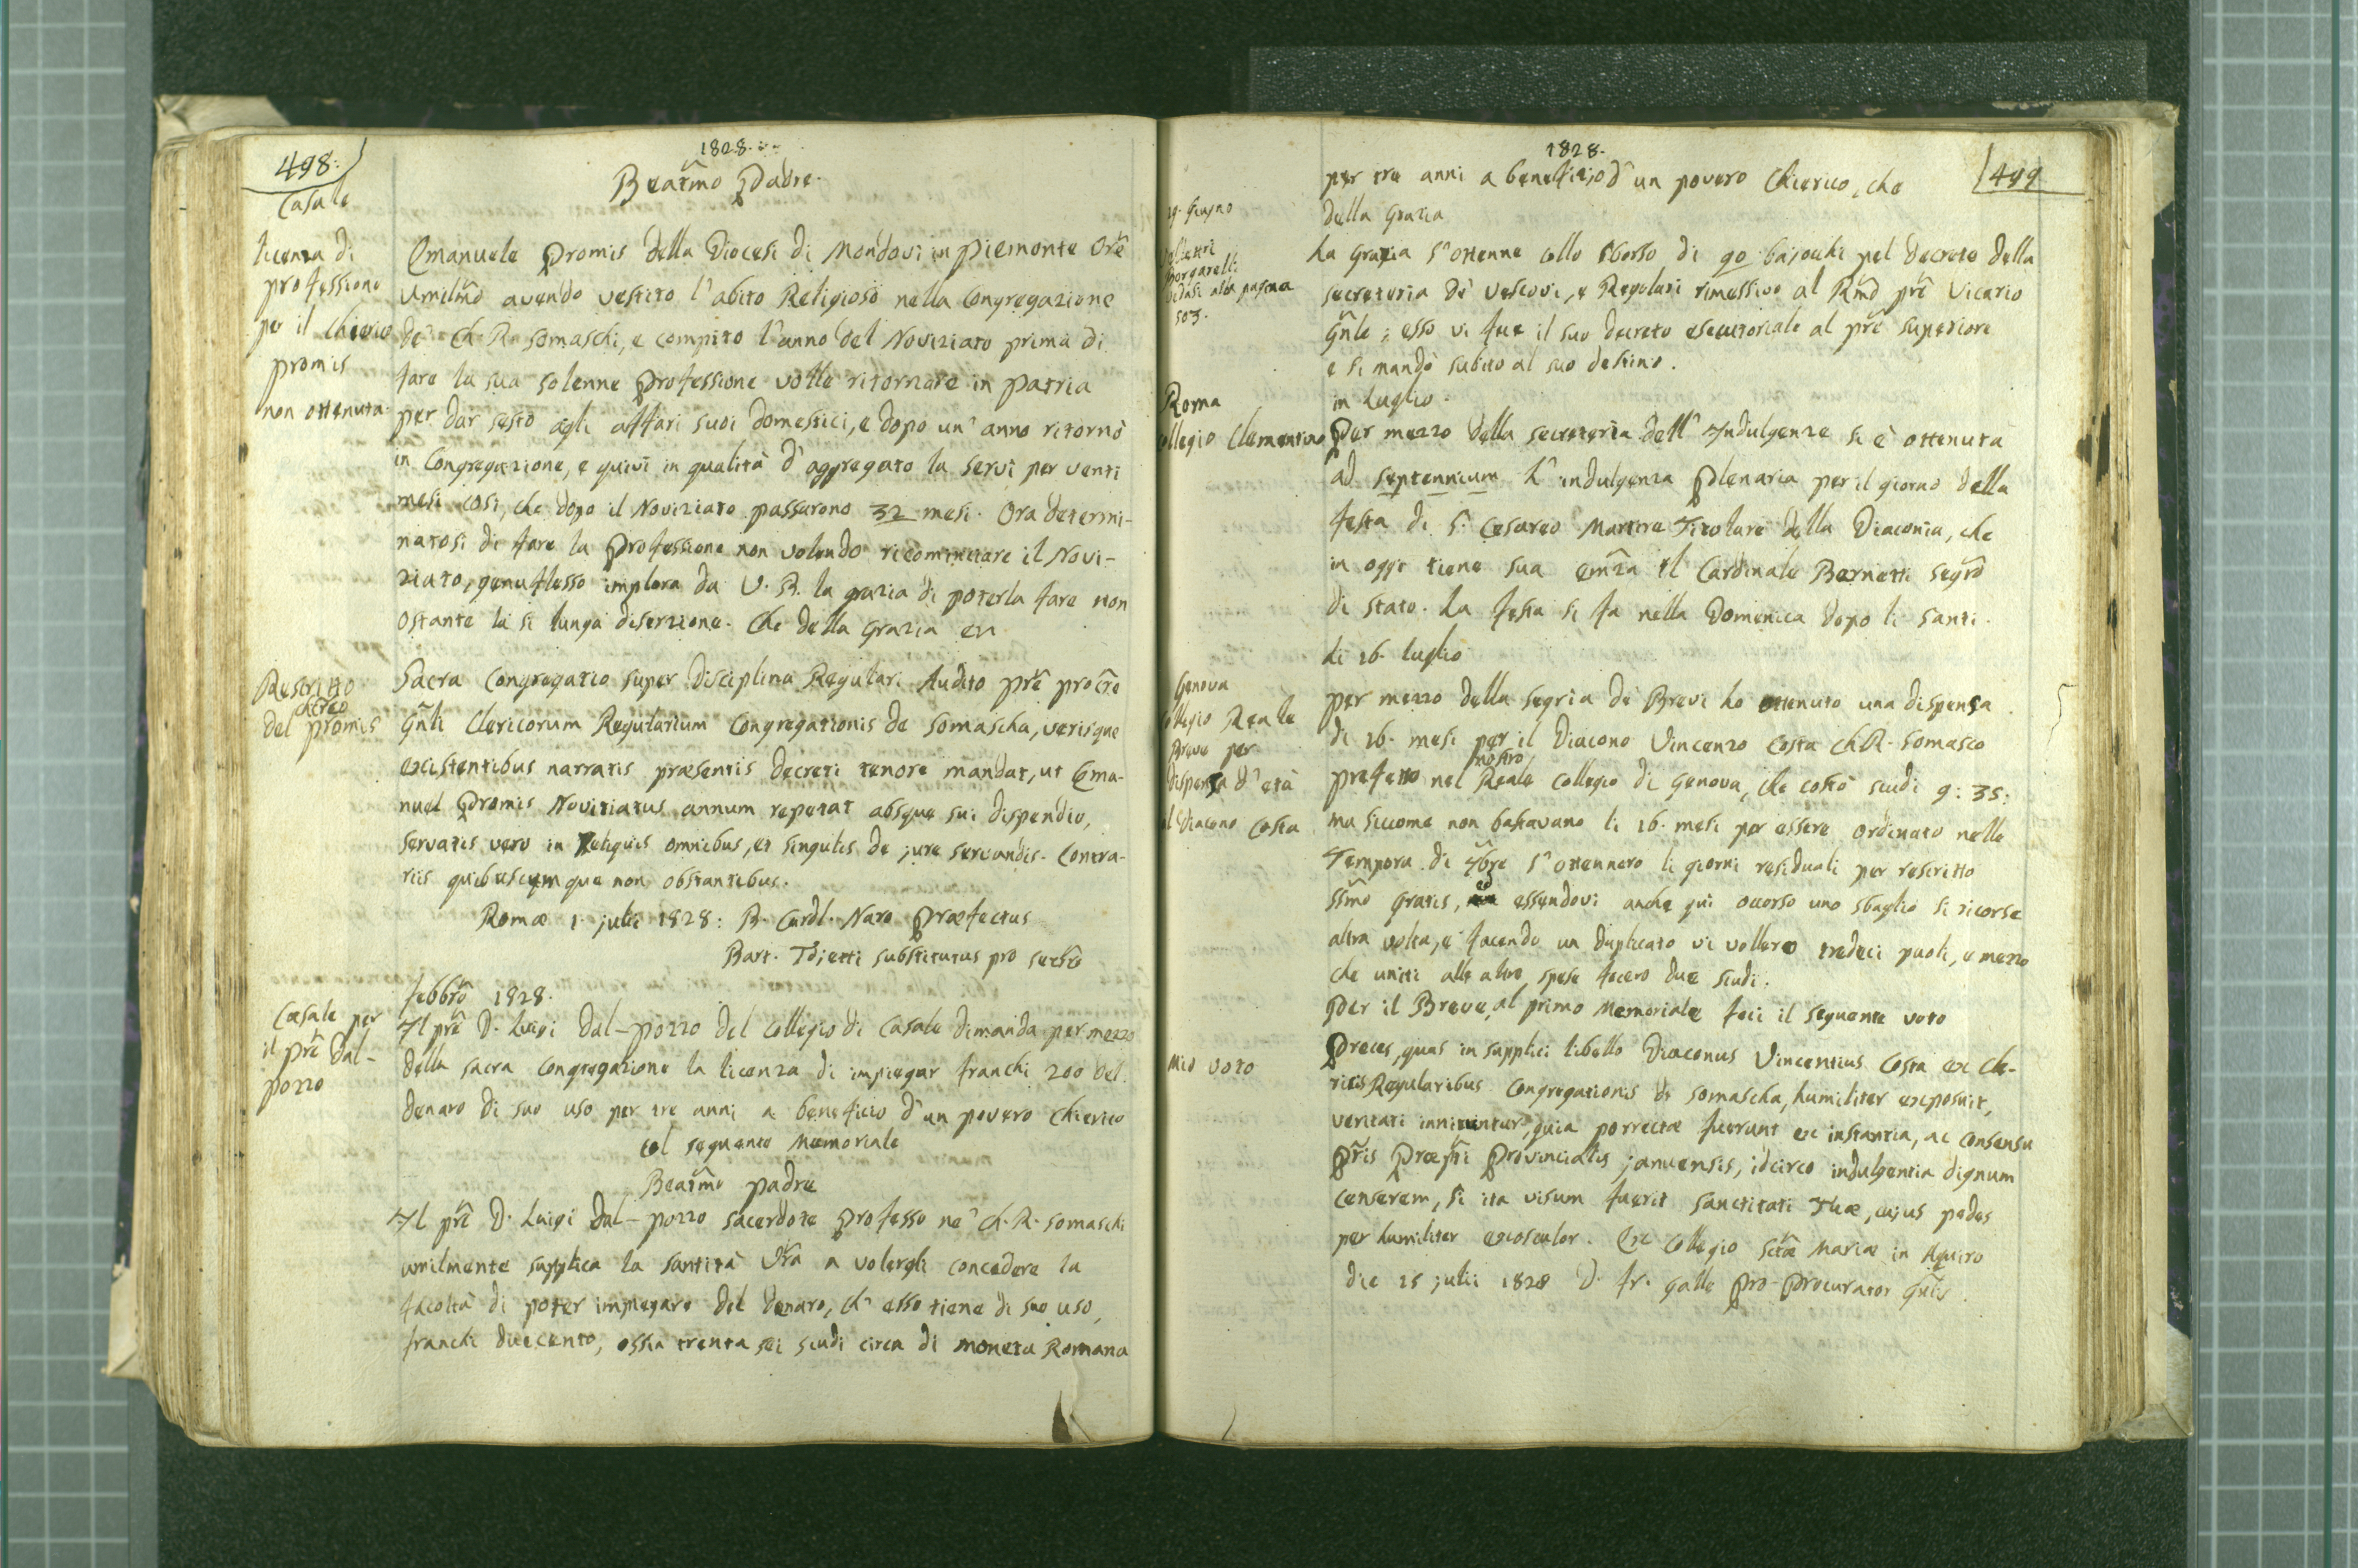 498.
1828.
Beatm̃o Padre.
Casale
licenza di
professione
per il Chierico
promis
non ottenuta
Emanuele Promis della Diocesi di Mondovi in Piemonte Orẽ
Umilm̃o avendo vestito l'abito Religioso nella Congregazione
de' Ch. R. Somaschi, e compito l'anno del Noviziato prima di
fare la sua solenne Professione volle ritornare in patria
per dar sesto agli affari suoi domestici, e dopo un' anno ritornò
in Congregazione, e quivi in qualità d'aggregato la servì per venti
mesi così, che dopo il Noviziato passarono 32 mesi. Ora determi-
natosi di fare la Professione non volendo ricominciare il Novi-
ziato, genuflesso implora da V. B. la grazia di poterla fare non
ostante la si lunga diserzione. Che della Grazia
Rescritto
del chrco promis
Sacra Congregatio super Disciplina Regulari Audito prẽ procrẽ
Gñli Clericorum Regularium Congregationis de Somascha, verisque
existentibus narratis præsentis decreti tenore mandat, ut Ema-
nuel Promis Novitiatus annum repetat absque sui dispendio,
servatis vero in Reliquis omnibus, et singulis de jure servandis. Contra-
riis quibuscumque non obstantibus.
Romæ 1. julii 1828: B. Cardl. Naro Præfectus
Bart. Tdjetti substitutus pro secrio
Casale per
il prẽ Dal-
pozzo
febbrõ 1828.
Il prẽ D. Luigi Dal-pozzo del collegio di Casale dimanda per mezzo
della sacra Congregazione la licenza di impiegar franchi 200 del
denaro di suo uso per tre anni a beneficio d'un povero Chierico
col seguente memoriale
Beatm̃o padre
Il prẽ D. Luigi Dal-pozzo sacerdote Professo ne' Ch. R. Somaschi
umilmente supplica la santità Vr̃a a volergli concedere la
facoltà di poter impiegare del denaro, ch' esso tiene di suo uso,
franchi duecento, ossia trenta sei scudi circa di moneta Romana
1828.
499
per tre anni a beneficio d'un povero Chierico, che
della Grazia
29. Giugno
Borgarelli
vedasi alla pagina
503.
La Grazia s'ottenne collo sborso di 90 bajocchi pel decreto della
secreteria de' Vescovi, e Regolari rimessivo al Rm̃d prẽ Vicario
Gñle; esso vi fue il suo decreto esecutoriale al prẽ superiore
e si mandò subito al suo destino.
in Luglio.
Roma
Collegio Clementino
Per mezzo della secreteria dell'Indulgenze si è ottenuta
ad septennium l'indulgenza Plenaria per il giorno della
festa di S. Cesareo Martire Titolare della Diaconia, che
in oggi tiene sua em̃za il Cardinale Bernetti segrõ
di stato. La festa si fa nella Domenica dopo li santi.
li 16. luglio
Genova
Collegio Reale
Breve per
dispensa d'età
al Diacono Costa
per mezzo della segrĩa de' Brevi ho ottenuto una dispensa
di 16. mesi per il Diacono Vincenzo Costa Ch. R. Somasco
prefetto nel nostro Reale Collegio di Genova, che costò scudi 9: 35:
ma siccome non bastavano li 16. mesi per essere ordinato nelle
Tempora di 7brẽ s'ottennero li giorni residuali per rescritto
SSm̃o gratis, ed essendovi anche quì occorso uno sbaglio si ricorse
altra volta, e facendo un duplicato vi vollero tredeci paoli, e mezzo
che uniti alle altre spese fecero due scudi.
Per il Breve, al primo Memoriale feci il seguente voto
Mio voto
Preces, quas in supplici libello Diaconus Vincentius Costa ex Cle-
ricis Regularibus Congregationis de Somascha, humiliter exposuit,
veritati innituntur, quia porrectæ fuerunt ex instantia, ac consensu
Pr̃is Præpti Provincialis januensis, idcirco indulgentia dignum
censerem, si ita visum fuerit sanctitati Tuæ, cujus pedes
per humiliter exosculor. Ex Collegio Sctæ Mariæ in Aquiro
die 15 julii 1828 D. fr. Galli Pro-Procurator Gñlis.